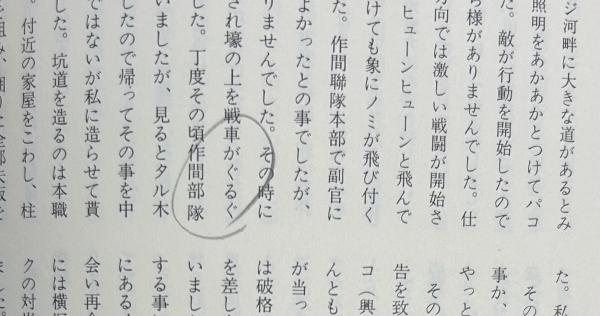 ジ河畔に大きな道があるとみ
照明をあかあかとつけてパコ
た。敵が行動を開始したので
ら様がありませんでした。仕
方向では激しい戦闘が開始さ
ヒューンヒューンと飛んで
けても象にノミが飛び付く
た。作間聯隊本部で副官に
よかったとの事でしたが、
りませんでした。その時に
され壕の上を戦車がぐるぐ
した。丁度その頃作間部隊
いましたが、見るとタル木
したので帰ってその事を中
ではないが私に造らせて貰
した。坑道を造るのは本職
。付近の家屋をこわし、柱
た。私
その
事か、
やっと
その
告を致
コ（興
んとも
が当っ
は破格
を差し
いまし
する事
にある
会い再会
には横
クの対